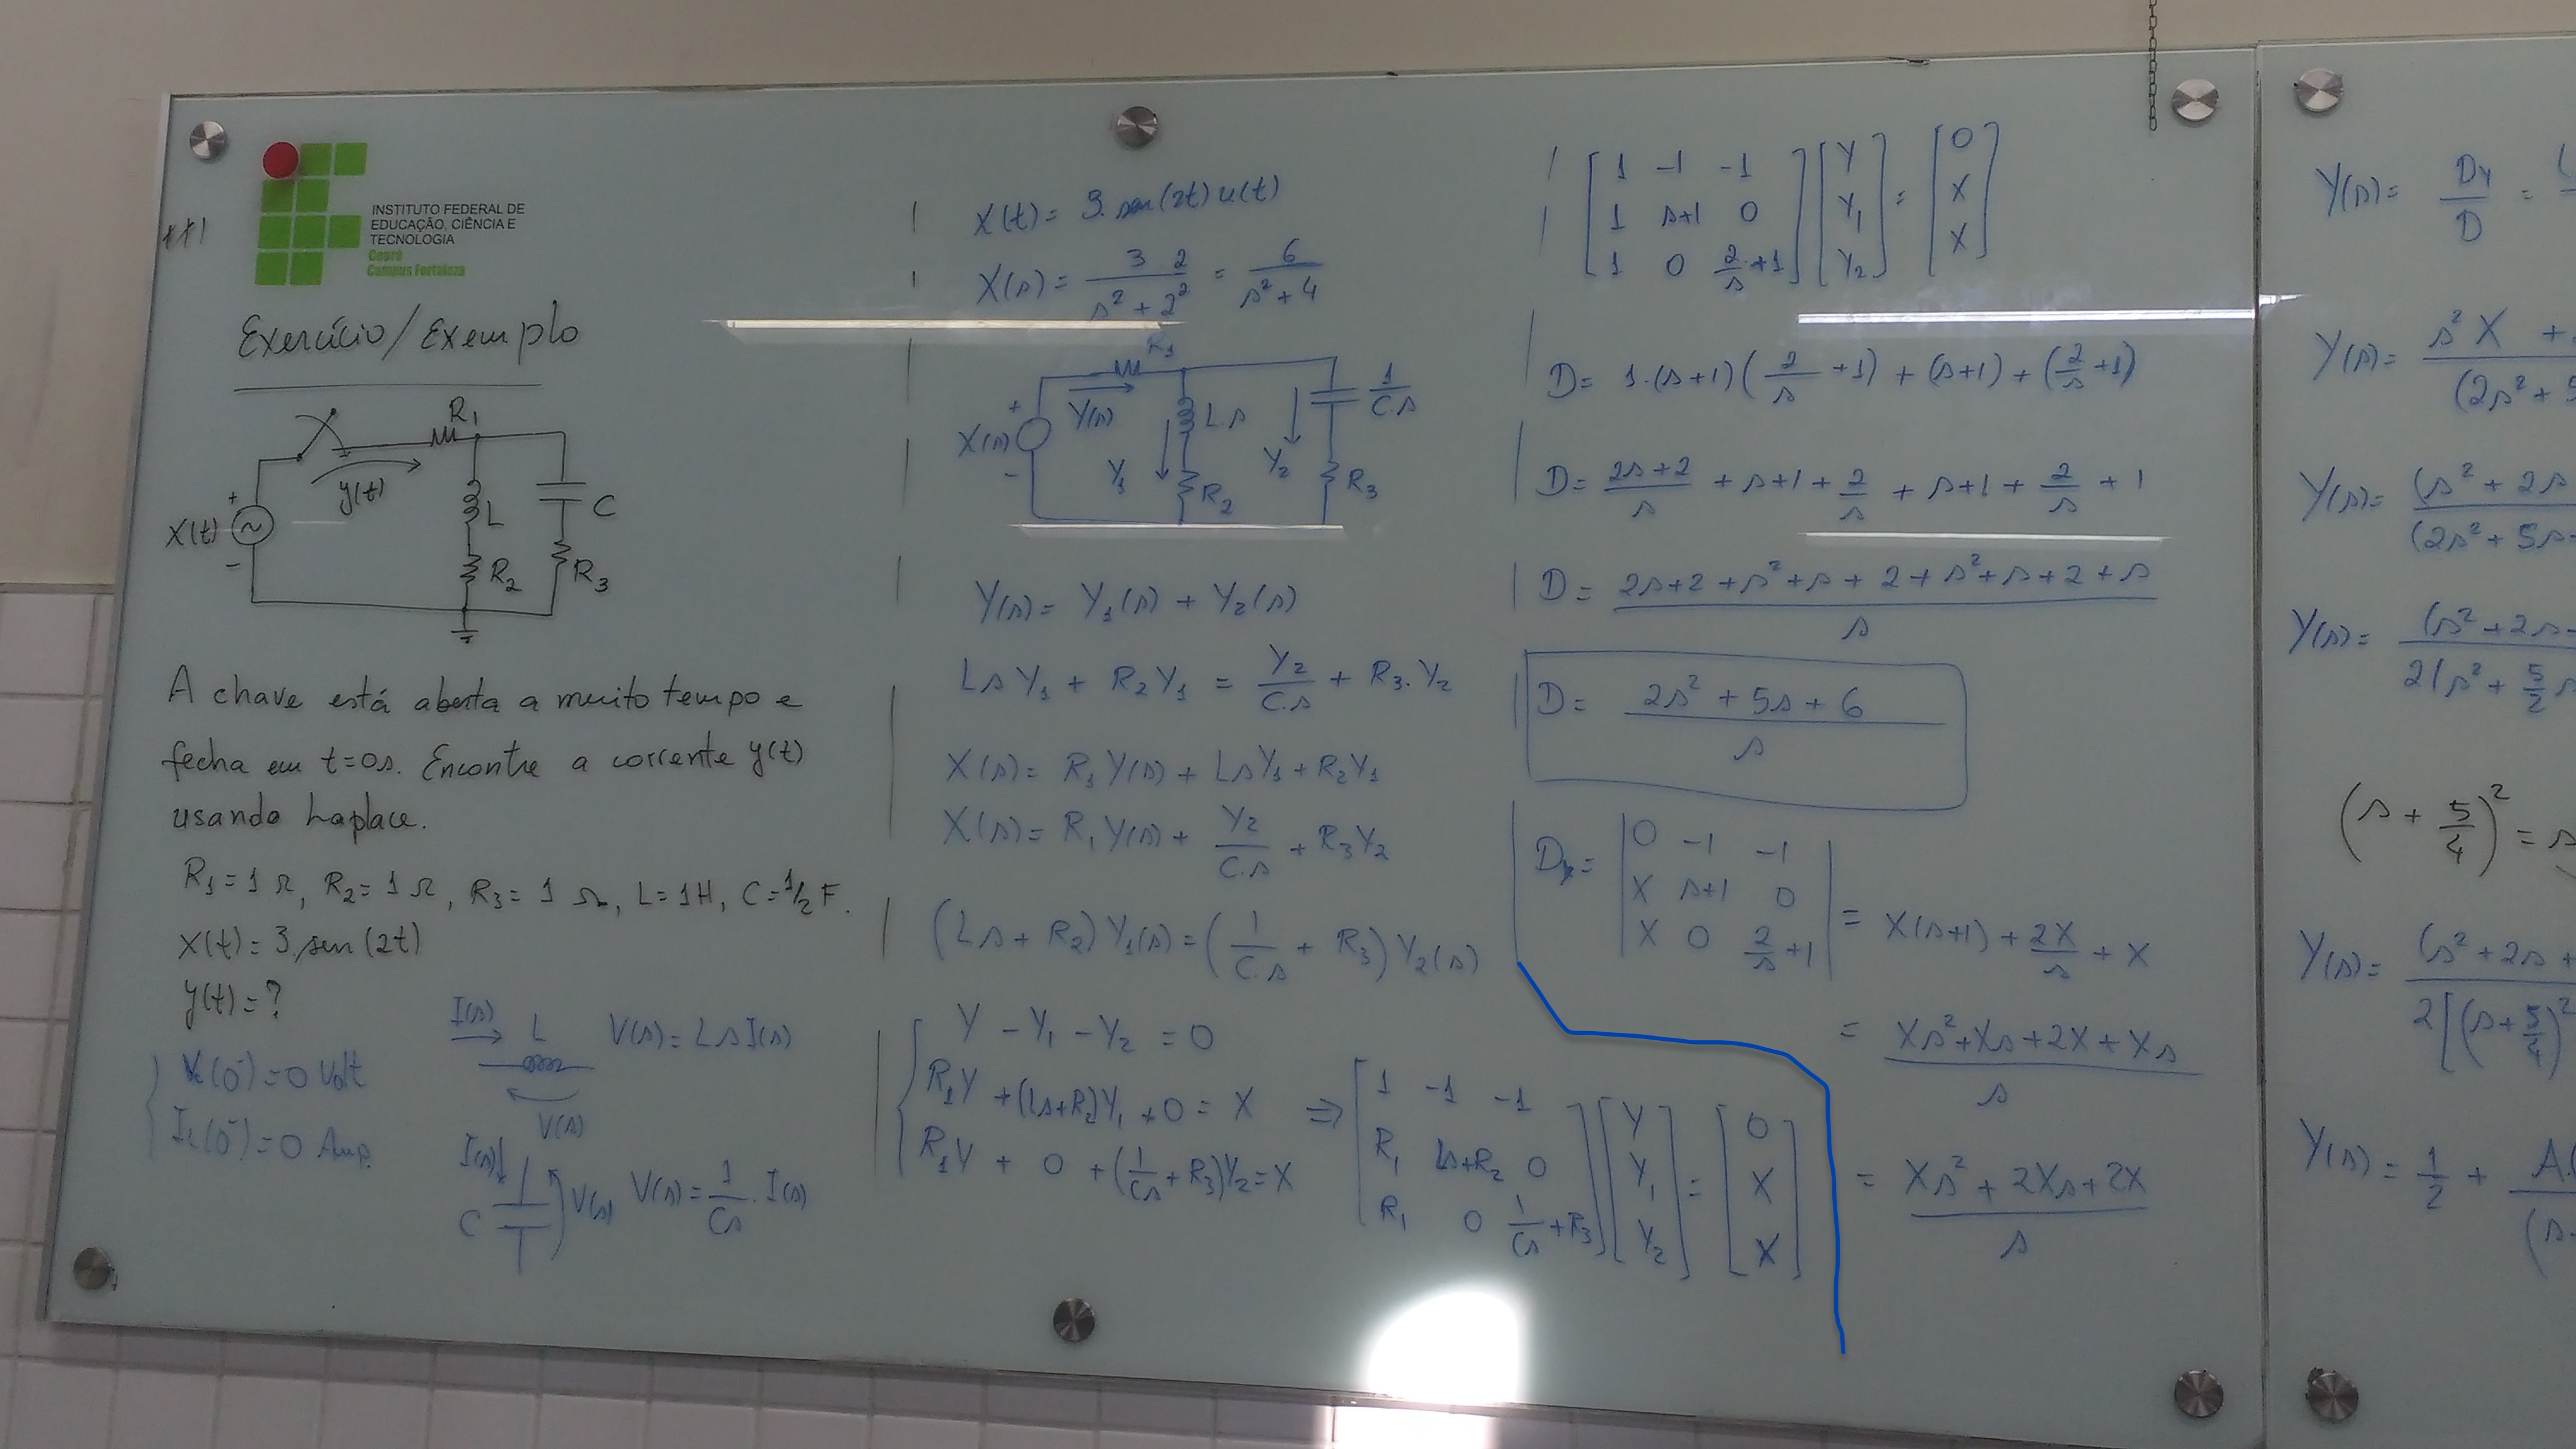 INSTITUTO FEDERAL DE
EDUCAÇÃO, CIÊNCIA E
TECNOLOGIA
Ceará
Campus Fortaleza
Exercício/Exemplo
R₁
y(t)
L
C
X(t)
+
-
R₂
R₃
A chave está aberta a muito tempo e
fecha em t=0s. Encontre a corrente y(t)
usando Laplace.
R₁=1Ω, R₂=1Ω, R₃=1Ω, L=1H, C=1/2F.
X(t)=3.sen(2t)
y(t)=?
Vc(0⁻)=0 Volt
IL(0⁻)=0 Amp.
I(s) L V(s)=LsI(s)
V(s)
I(s)
C V(s) V(s)=1/Cs . I(s)
X(t)=3.sen(2t)u(t)
X(s)= 3.2/s²+2² = 6/s²+4
R₁
+
X(s) Y(s) L.s 1/C.s
-
Y₁ R₂ Y₂ R₃
Y(s)= Y₁(s) + Y₂(s)
LsY₁ + R₂Y₁ = Y₂/C.s + R₃.Y₂
X(s)= R₁Y(s) + LsY₁ + R₂Y₁
X(s)= R₁Y(s) + Y₂/C.s + R₃Y₂
(Ls + R₂)Y₁(s) = (1/C.s + R₃)Y₂(s)
Y - Y₁ - Y₂ = 0
R₁Y + (Ls+R₂)Y₁ + 0 = X
R₁Y + 0 + (1/Cs + R₃)Y₂ = X
⇒ [1 -1 -1] [Y] = [0]
[R₁ Ls+R₂ 0] [Y₁] [X]
[R₁ 0 1/Cs+R₃] [Y₂] [X]
[1 -1 -1] [Y] = [0]
[1 s+1 0] [Y₁] [X]
[1 0 2/s+1] [Y₂] [X]
D= 1.(s+1)(2/s +1) + (s+1) + (2/s +1)
D= 2s+2/s + s+1 + 2/s + s+1 + 2/s + 1
D= 2s+2+s²+s+2+s²+s+2+s/s
D= 2s²+5s+6/s
Dy= |0 -1 -1|
|X s+1 0| = X(s+1) + 2X/s + X
|X 0 2/s+1|
= Xs²+Xs+2X+Xs/s
= Xs²+2Xs+2X/s
Y(s)= Dy/D =
Y(s)= s²X +
(2s²+5
Y(s)= (s²+2s
(2s²+5s
Y(s)= (s²+2s
2(s²+5/2 s
(s+5/4)² = s
Y(s)= (s²+2s+
2[(s+5/4)²
Y(s)= 1/2 + A.(
(s